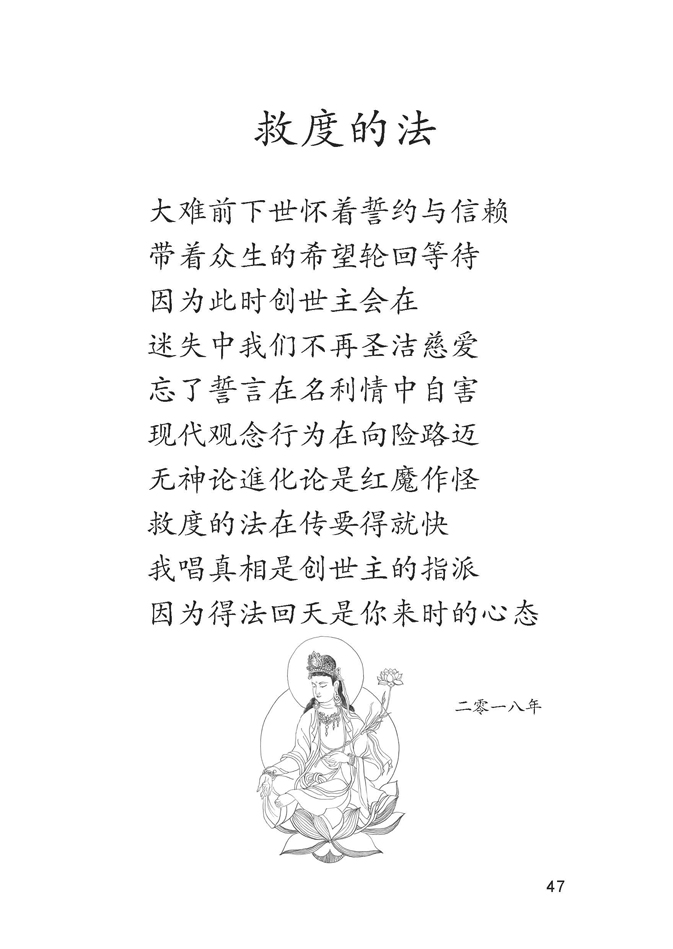 救度的法
大难前下世怀着誓约与信赖
带着众生的希望轮回等待
因为此时创世主会在
迷失中我们不再圣洁慈爱
忘了誓言在名利情中自害
现代观念行为在向险路迈
无神论進化论是红魔作怪
救度的法在传要得就快
我唱真相是创世主的指派
因为得法回天是你来时的心态
二零一八年
47